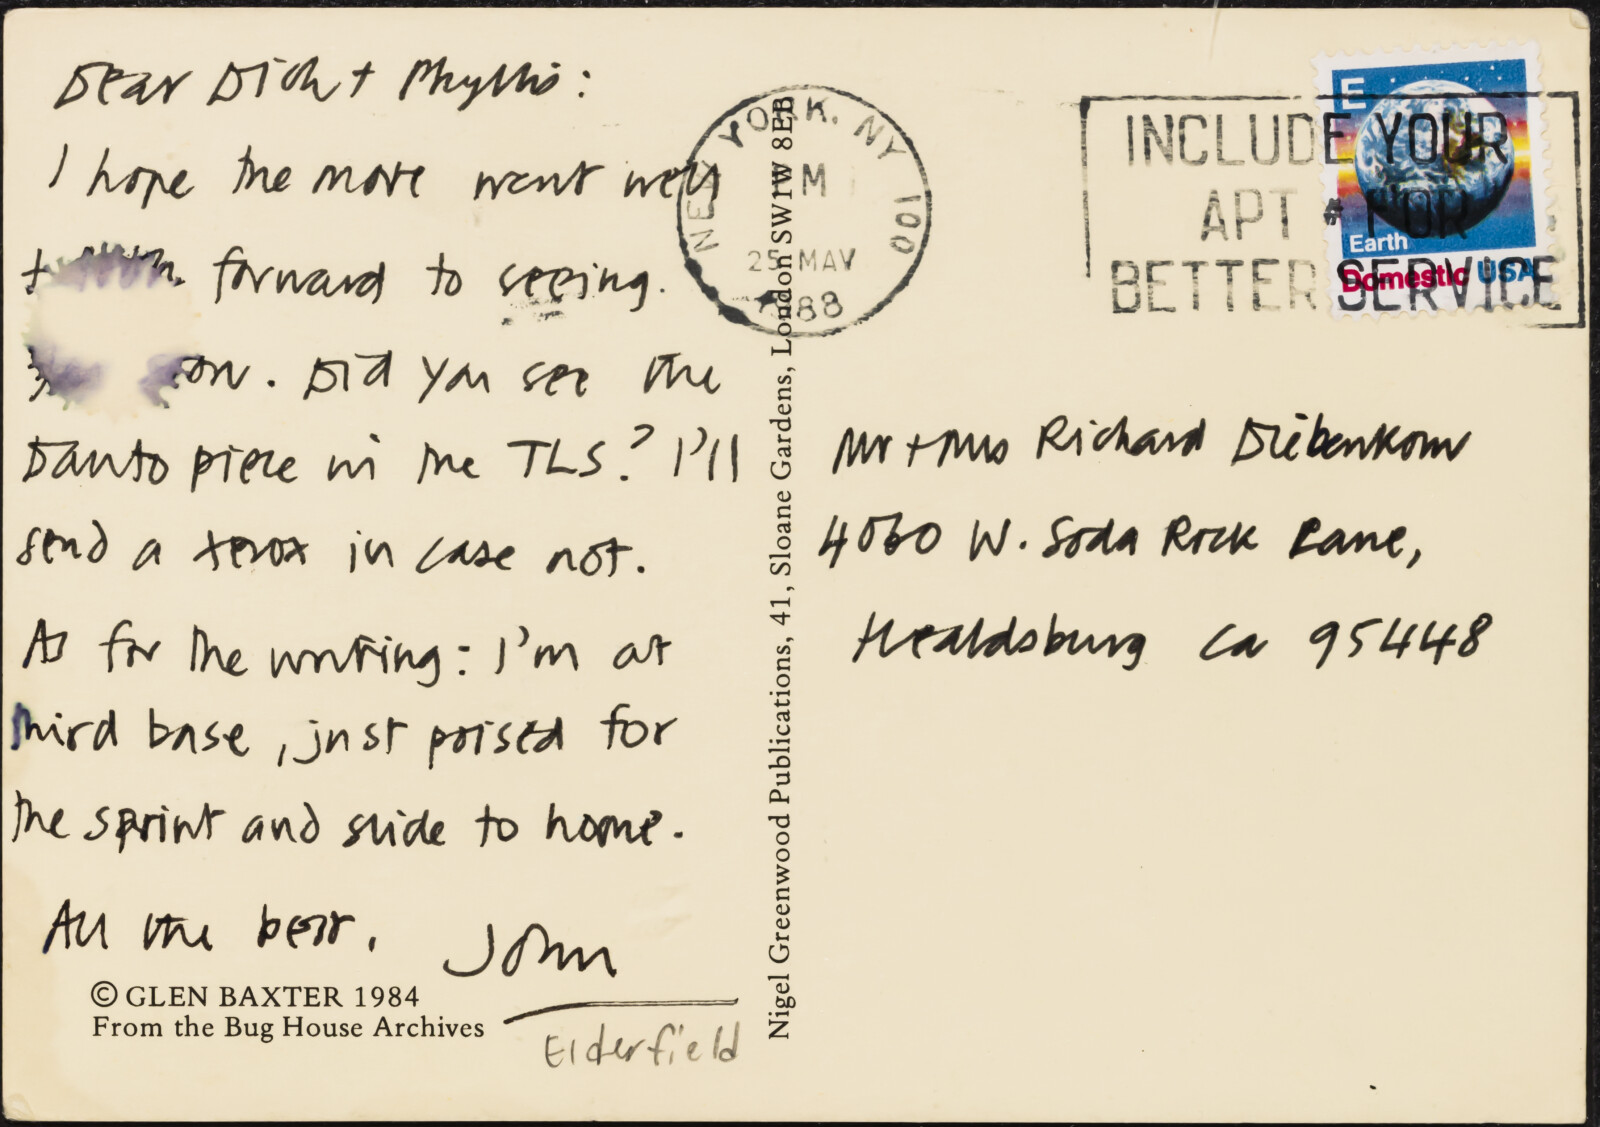 Dear Dick + Phyllis:
I hope the move went well
+ forward to seeing.
Did you see the
Danto piece in the TLS? I'll
send a xerox in case not.
As for the writing: I'm at
third base, just poised for
the sprint and slide to home.
All the best,
John
Elderfield
© GLEN BAXTER 1984
From the Bug House Archives
Nigel Greenwood Publications, 41, Sloane Gardens, London SW1W 8EB
NEW YORK, NY 100
M
25 MAY
1988
INCLUDE YOUR
APT # FOR
BETTER SERVICE
E
Earth
Domestic USA
Mr + Mrs Richard Diebenkorn
4060 W. Soda Rock Lane,
Healdsburg Ca 95448